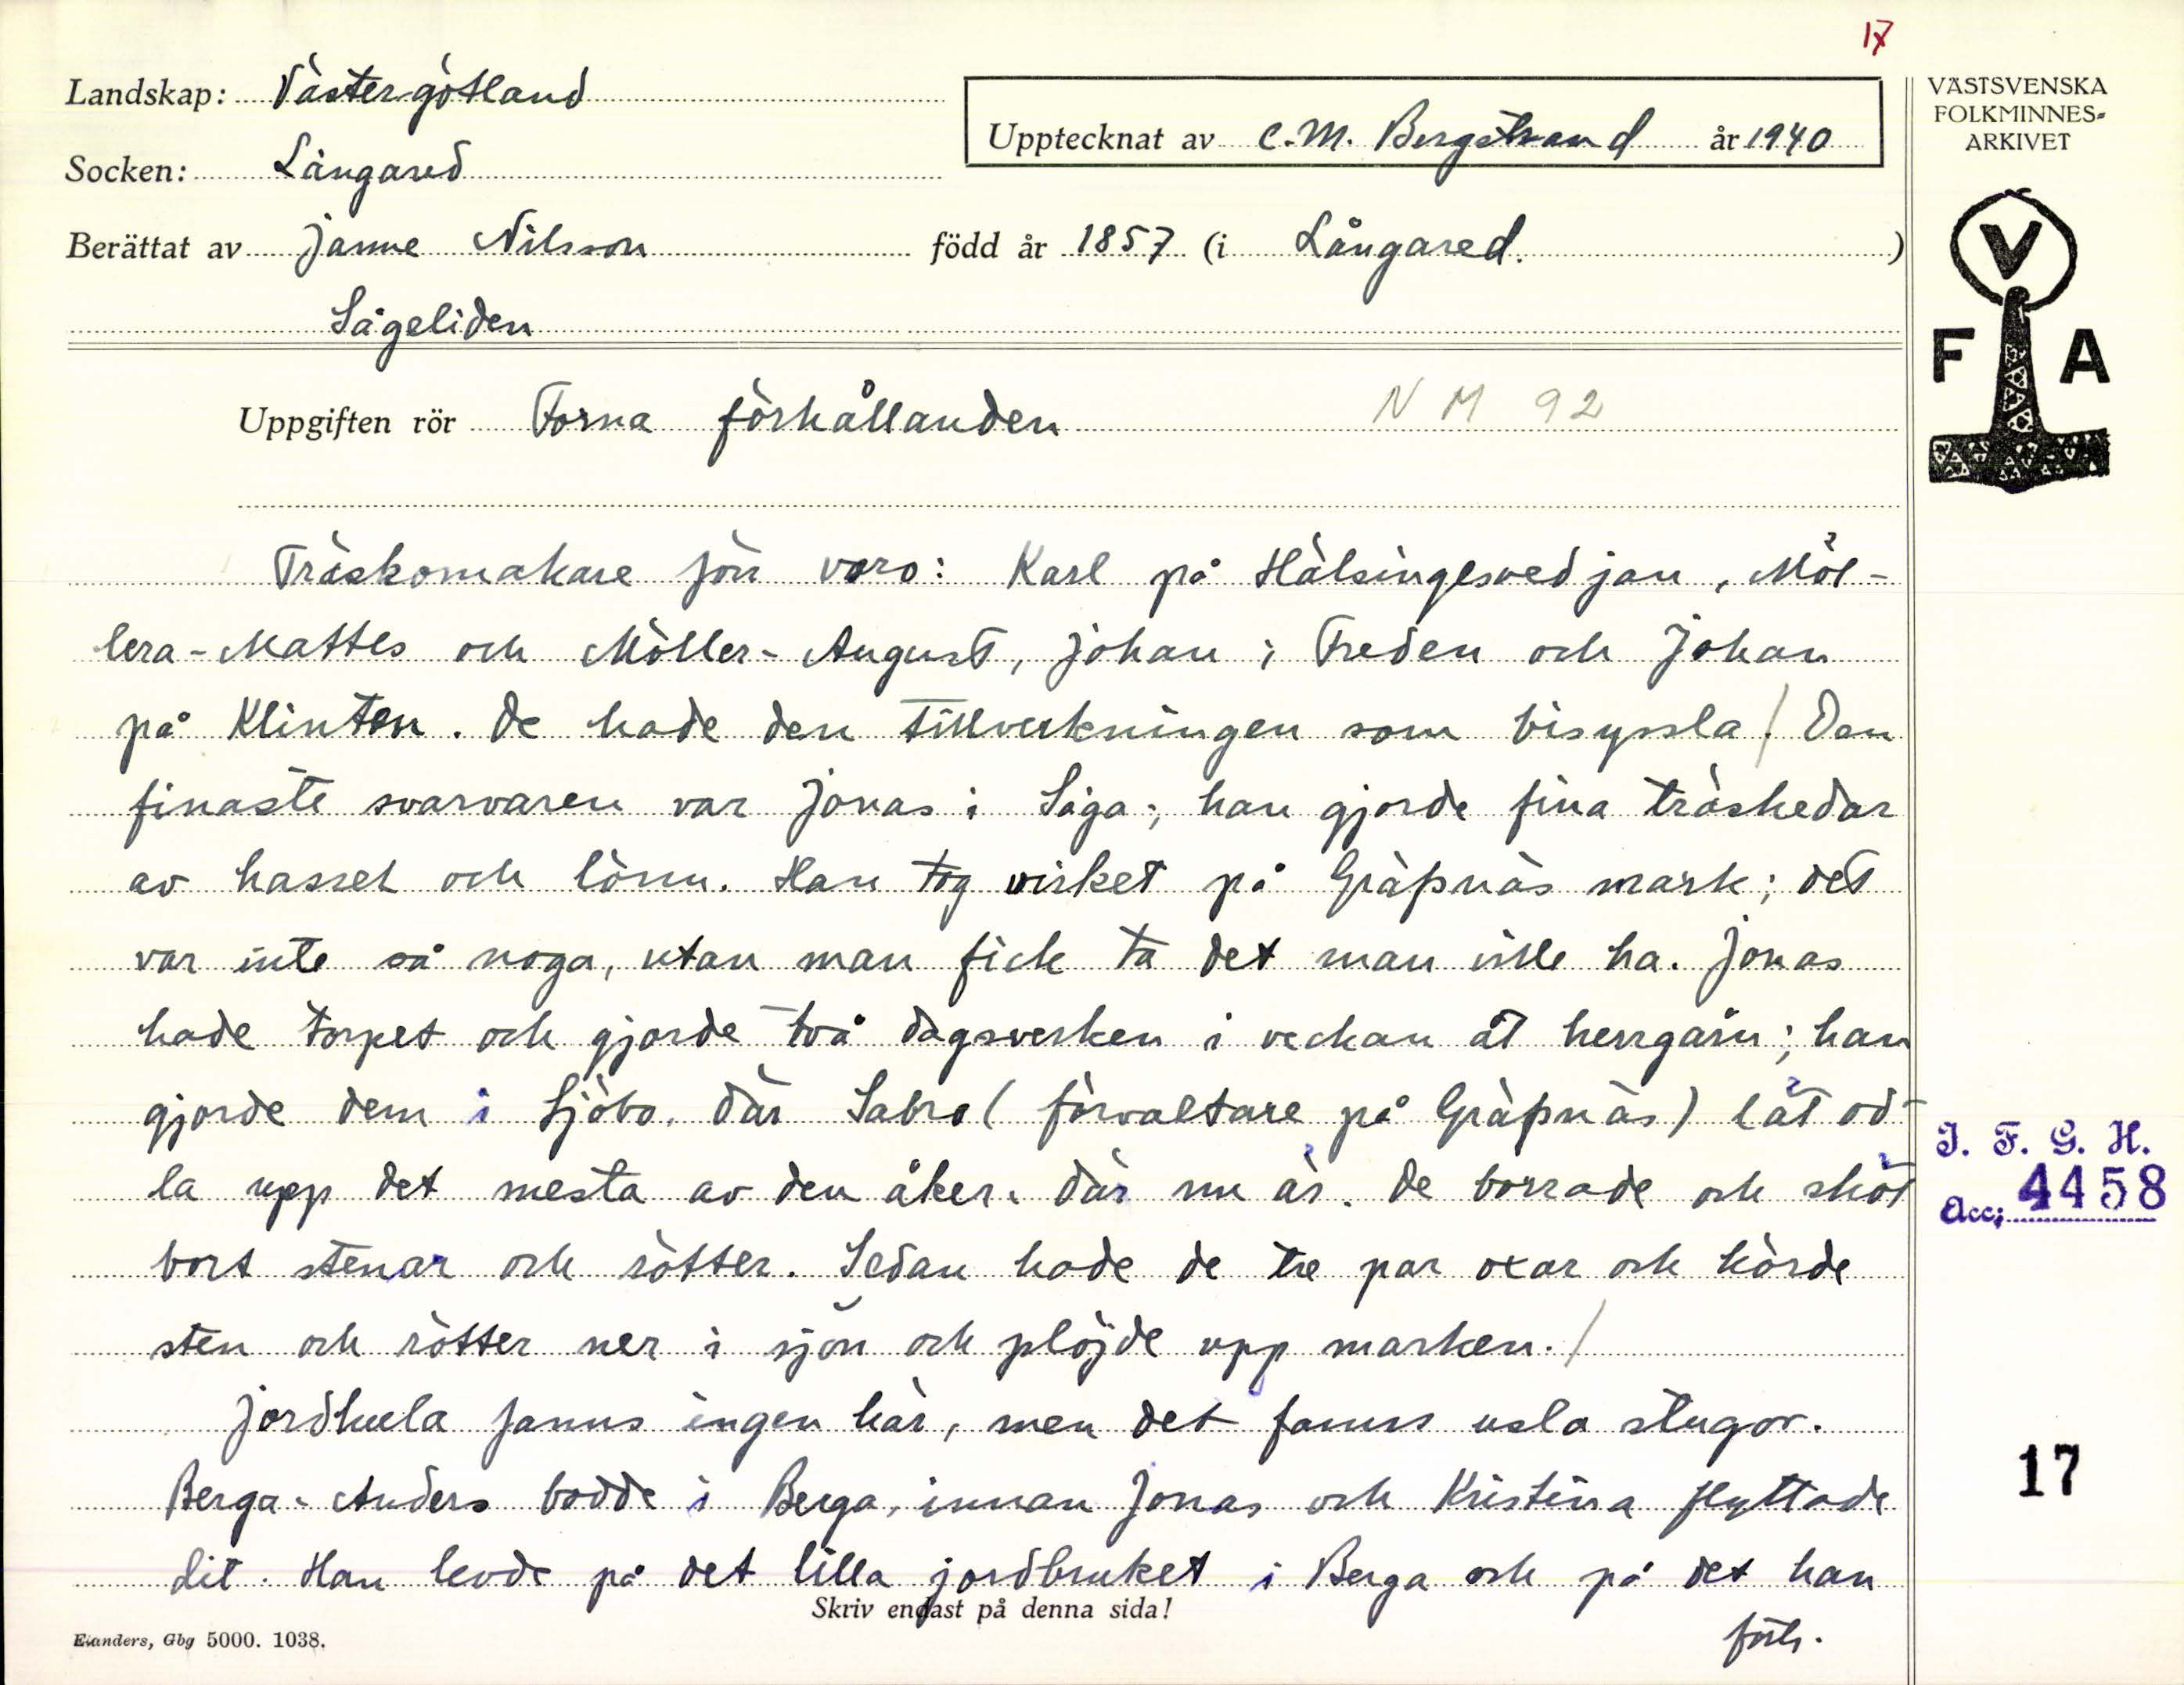 17
Landskap: Västergötland
Socken: Långared
Upptecknat av C.M. Bergstrand år 1940
Berättat av Janne Nilsson född år 1857 (i Långared.)
Sågeliden
Uppgiften rör Forna förhållanden
NM 92
Träskomakare förr voro: Karl på Hälsingesvedjan, Möl-
lera-Mattes och Möller-August, Johan i Freden och Johan
på Klinten. De hade den tillverkningen som bisyssla / Den
finaste svarvaren var Jonas i Såga; han gjorde fina träskedar
av hassel och lönn. Han tog virket på Gräfsnäs mark; det
var inte så noga, utan man fick ta det man ville ha. Jonas
hade torpet och gjorde två dagsverken i veckan åt herrgårn; han
gjorde dem i Sjöbo, där Sabro (förvaltare på Gräfsnäs) lät od-
la upp det mesta av den åker, där nu är. De borrade och sköt
bort stenar och rötter. Sedan hade de tre par oxar och körde
sten och rötter ner i sjön och plöjde upp marken. /
Jordkula fanns ingen här, men det fanns usla stugor.
Berga-Anders bodde i Berga, innan Jonas och Kristina flyttade
dit. Han levde på det lilla jordbruket i Berga och på det han
Skriv endast på denna sida!
forts.
Elanders, Gbg 5000. 1038.
VÄSTSVENSKA
FOLKMINNES-
ARKIVET
V
F A
I. F. G. H.
Acc; 4458
17